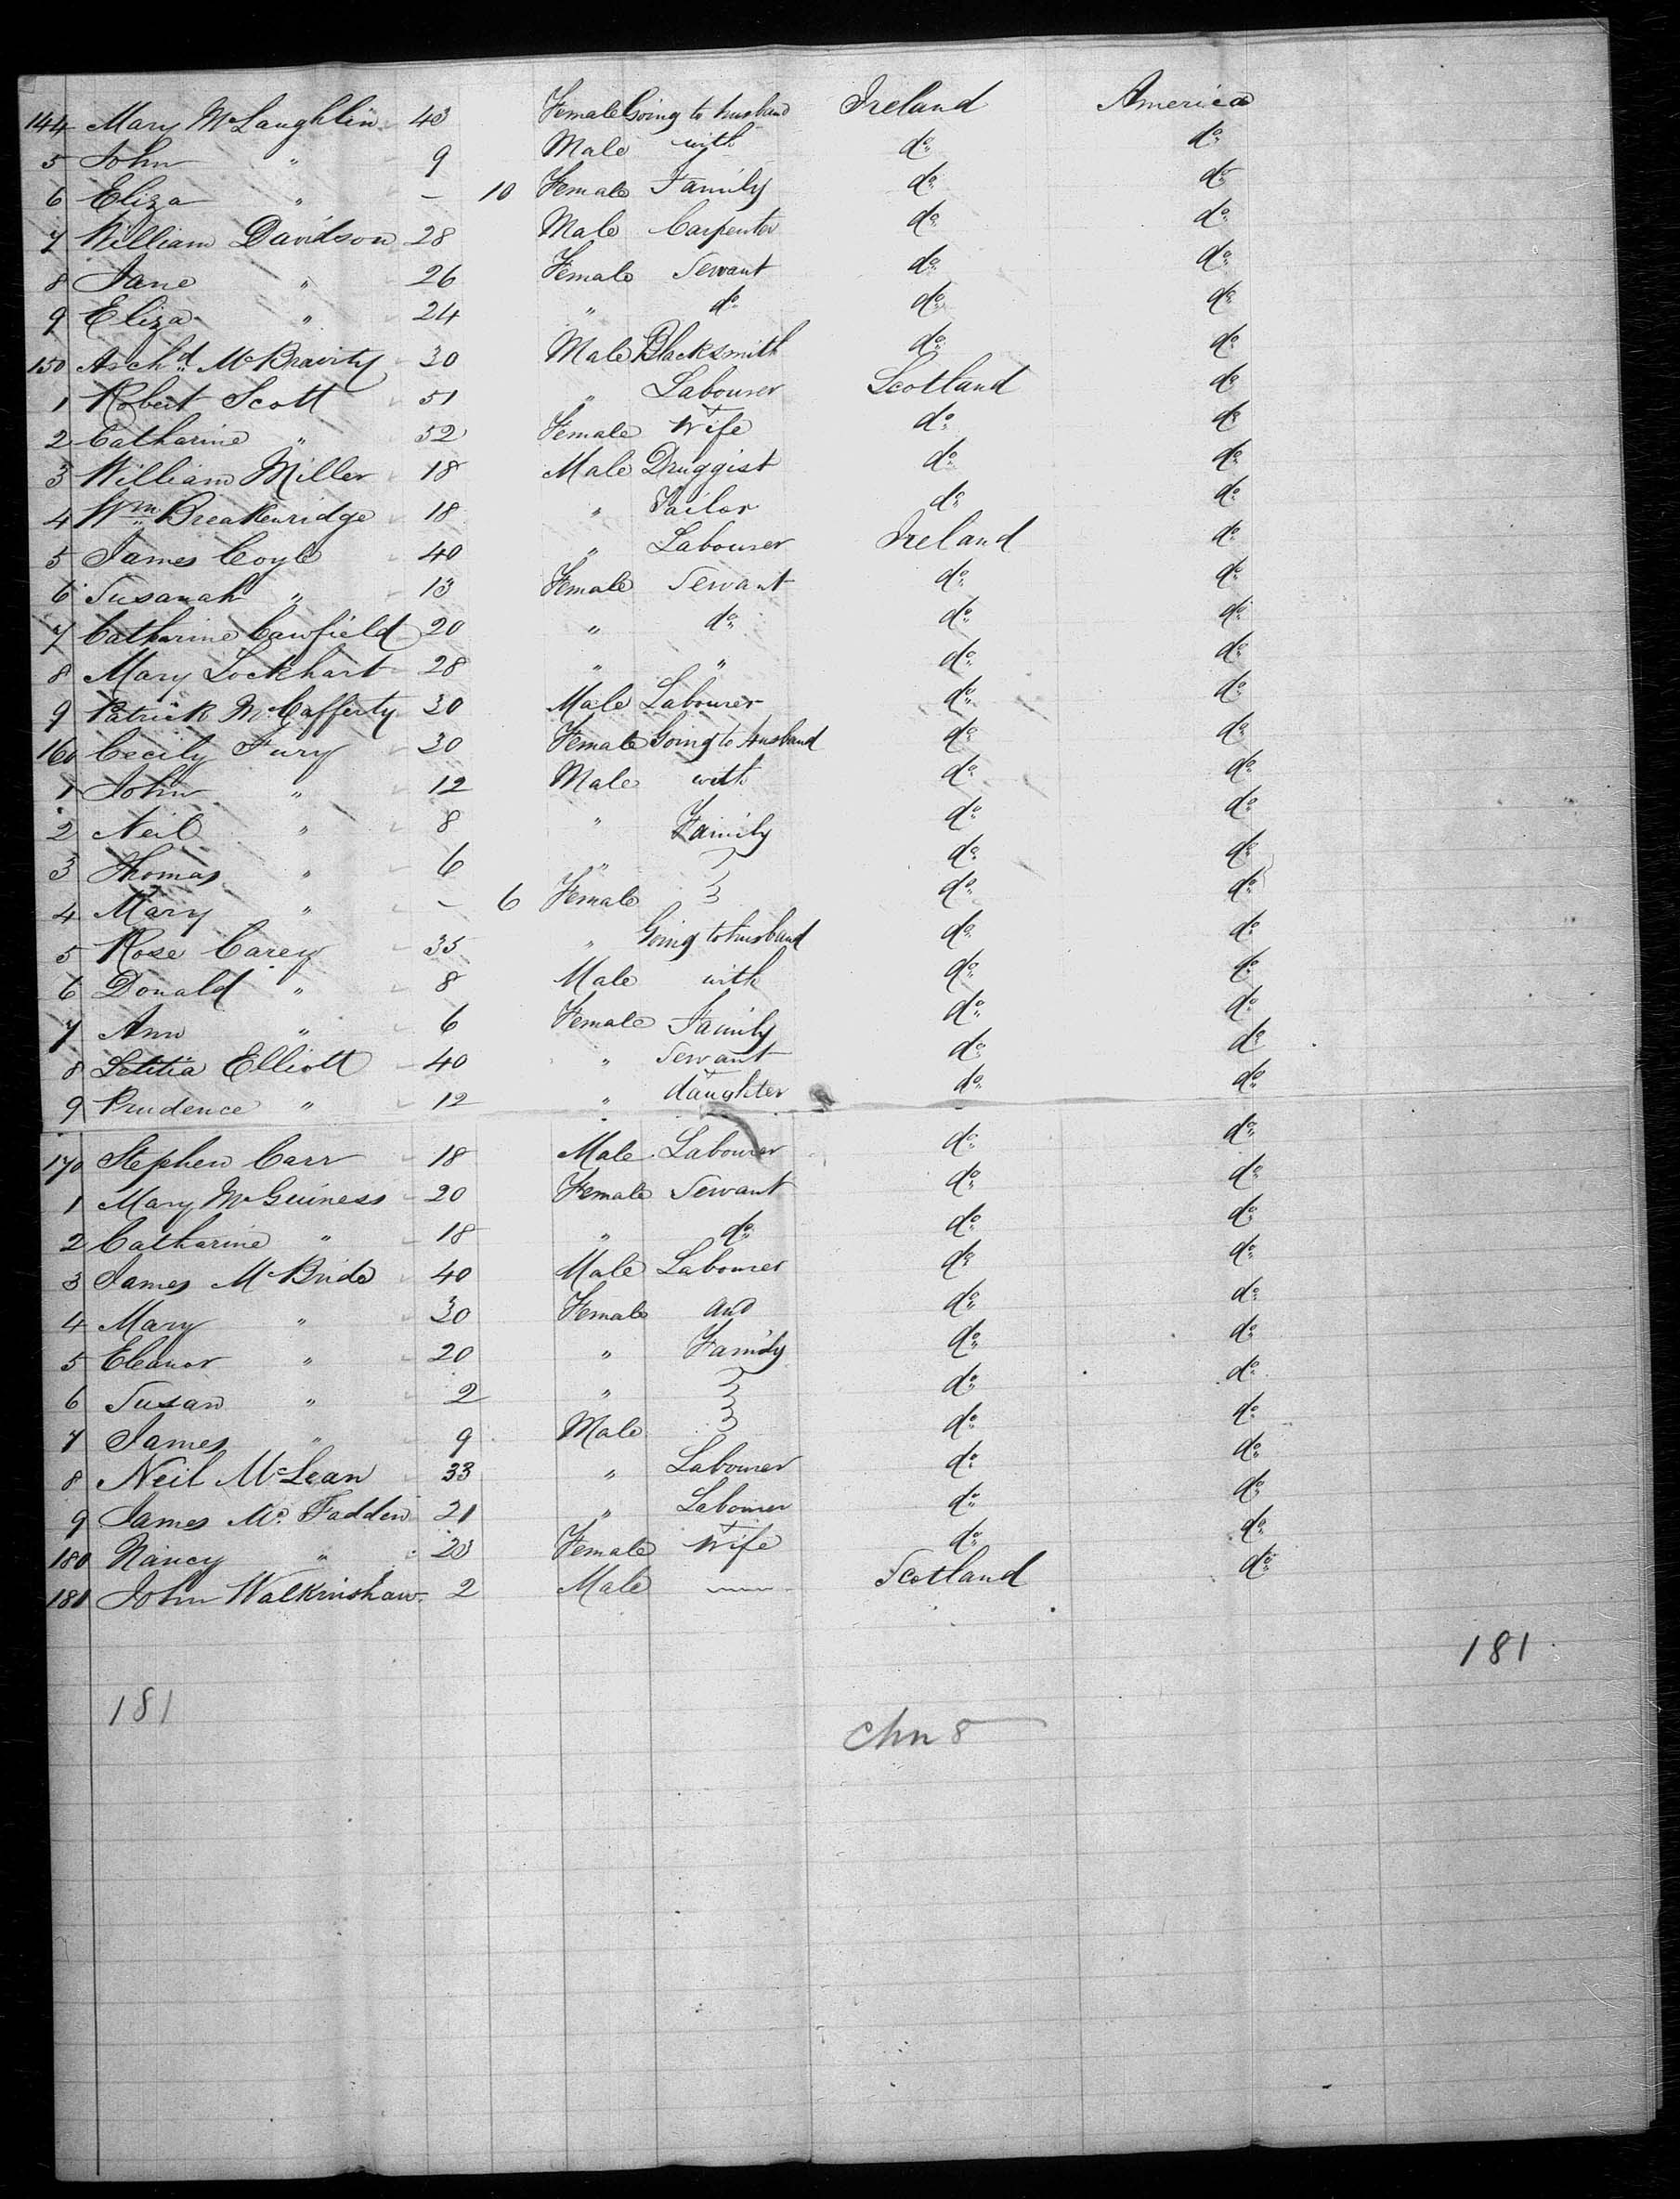 144 Mary McLaughlin 43 Female Going to husband Ireland America
5 John " 9 Male with do do
6 Eliza " - 10 Female Family do do
7 William Davidson 28 Male Carpenter do do
8 Jane " 26 Female Servant do do
9 Eliza " 24 " do do do
150 Archd McBravity 30 Male Blacksmith do do
1 Robert Scott 51 " Labourer Scotland do
2 Catharine " 52 Female Wife do do
3 William Miller 18 Male Druggist do do
4 Wm Breakenridge 18 " Tailor do do
5 James Coyle 40 " Labourer Ireland do
6 Susanah " 13 Female Servant do do
7 Catharine Cawfield 20 " do do do
8 Mary Lockhart 28 " " do do
9 Patrick McCafferty 30 Male Labourer do do
160 Cecily Fury 30 Female Going to Husband do do
1 John " 12 Male with do do
2 Neil " 8 " Family do do
3 Thomas " 6 " " do do
4 Mary " - 6 Female " do do
5 Rose Carey 35 " Going to husband do do
6 Donald " 8 Male with do do
7 Ann " 6 Female Family do do
8 Letitia Elliott 40 " Servant do do
9 Prudence " 12 " daughter do do
170 Stephen Carr 18 Male Labourer do do
1 Mary McGuiness 20 Female Servant do do
2 Catharine " 18 " do do do
3 James McBride 40 Male Labourer do do
4 Mary " 30 Female and do do
5 Eleanor " 20 " Family do do
6 Susan " 2 " " do do
7 James " 9 Male " do do
8 Neil McLean 33 " Labourer do do
9 James Mc Fadden 21 " Labourer do do
180 Nancy " 23 Female Wife do do
181 John Walkinshaw 2 Male — Scotland do
181
181